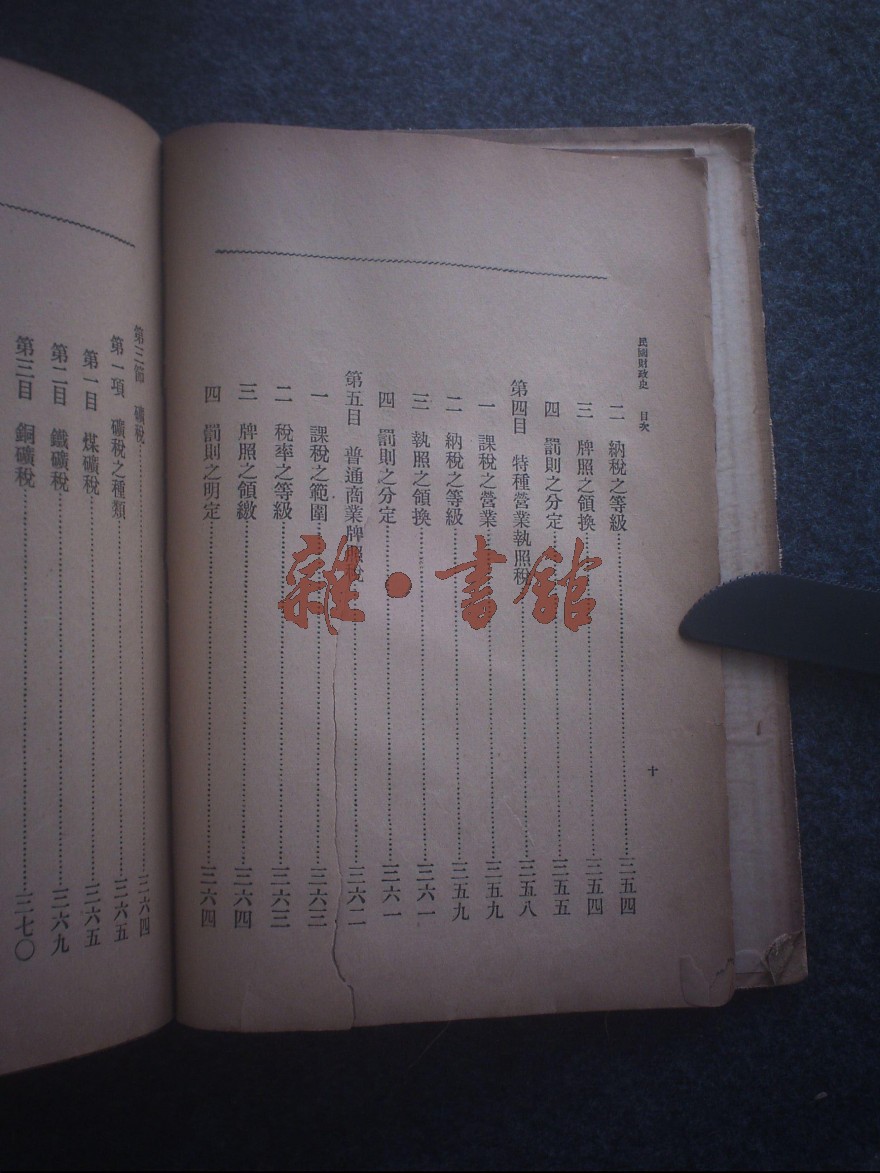 民國財政史 目次
十
二 納稅之等級……三五四
三 牌照之領換……三五四
四 罰則之分定……三五五
第四目 特種營業執照稅……三五八
一 課稅之營業……三五九
二 納稅之等級……三五九
三 執照之領換……三六一
四 罰則之分定……三六一
第五目 普通商業牌照稅……三六二
一 課稅之範圍……三六三
二 稅率之等級……三六三
三 牌照之領繳……三六四
四 罰則之明定……三六四
第三節 礦稅……三六四
第一項 礦稅之種類……三六五
第一目 煤礦稅……三六五
第二目 鐵礦稅……三六九
第三目 銅礦稅……三七〇
雜·書館